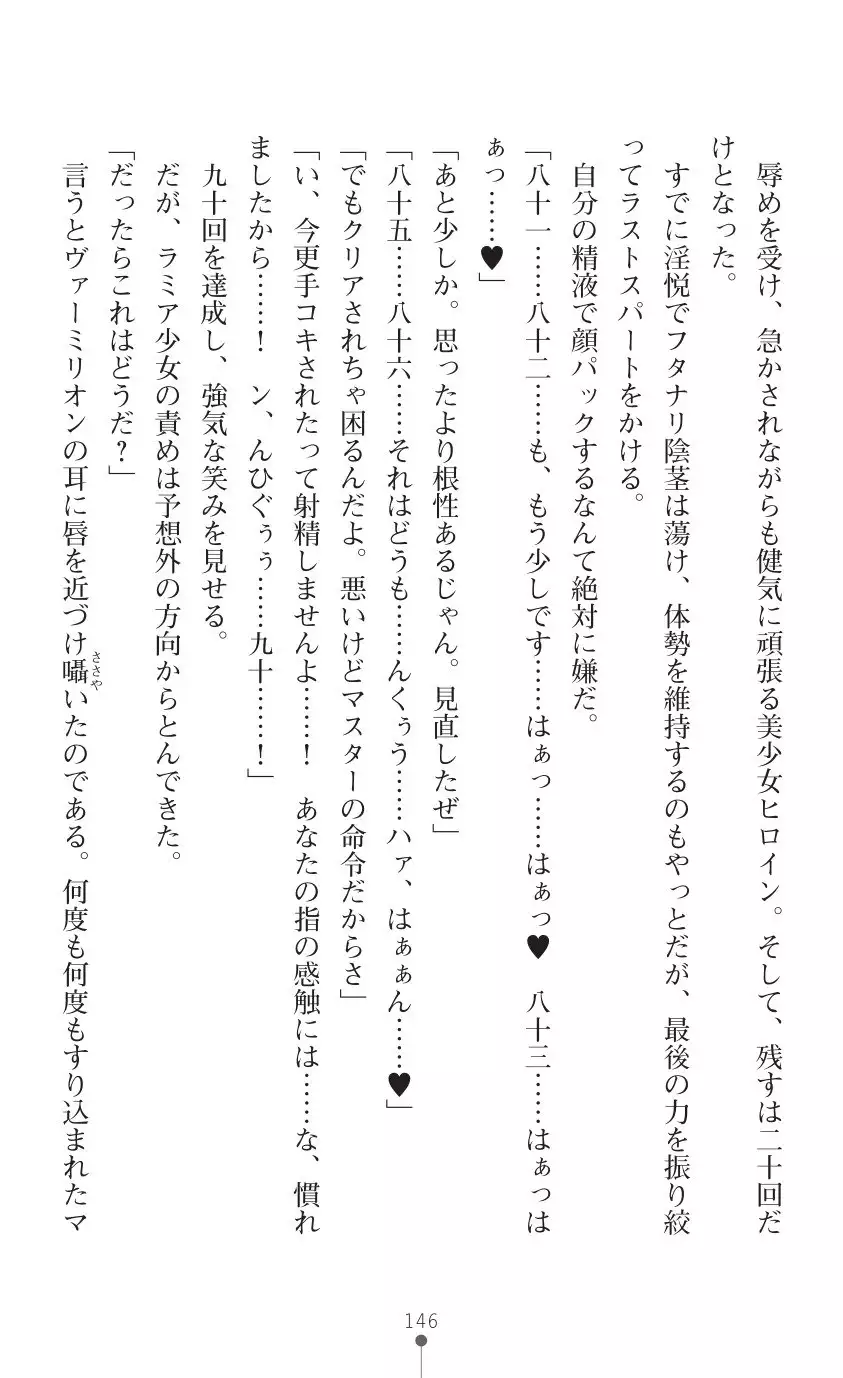 辱めを受け、急かされながらも健気に頑張る美少女ヒロイン。そして、残すは二十回だ
けとなった。
すでに淫悦でフタナリ陰茎は蕩け、体勢を維持するのもやっとだが、最後の力を振り絞
ってラストスパートをかける。
自分の精液で顔パックするなんて絶対に嫌だ。
「八十一……八十二……も、もう少しです……はぁっ……はぁっ♥　八十三……はぁっは
ぁっ……♥」
「あと少しか。思ったより根性あるじゃん。見直したぜ」
「八十五……八十六……それはどうも……んくぅう……ハァ、はぁぁん……♥」
「でもクリアされちゃ困るんだよ。悪いけどマスターの命令だからさ」
「い、今更手コキされたって射精しませんよ……！　あなたの指の感触には……な、慣れ
ましたから……！　ン、んひぐぅぅ……九十……！」
九十回を達成し、強気な笑みを見せる。
だが、ラミア少女の責めは予想外の方向からとんできた。
「だったらこれはどうだ？」
言うとヴァーミリオンの耳に唇を近づけ囁いたのである。何度も何度もすり込まれたマ
ささや
146